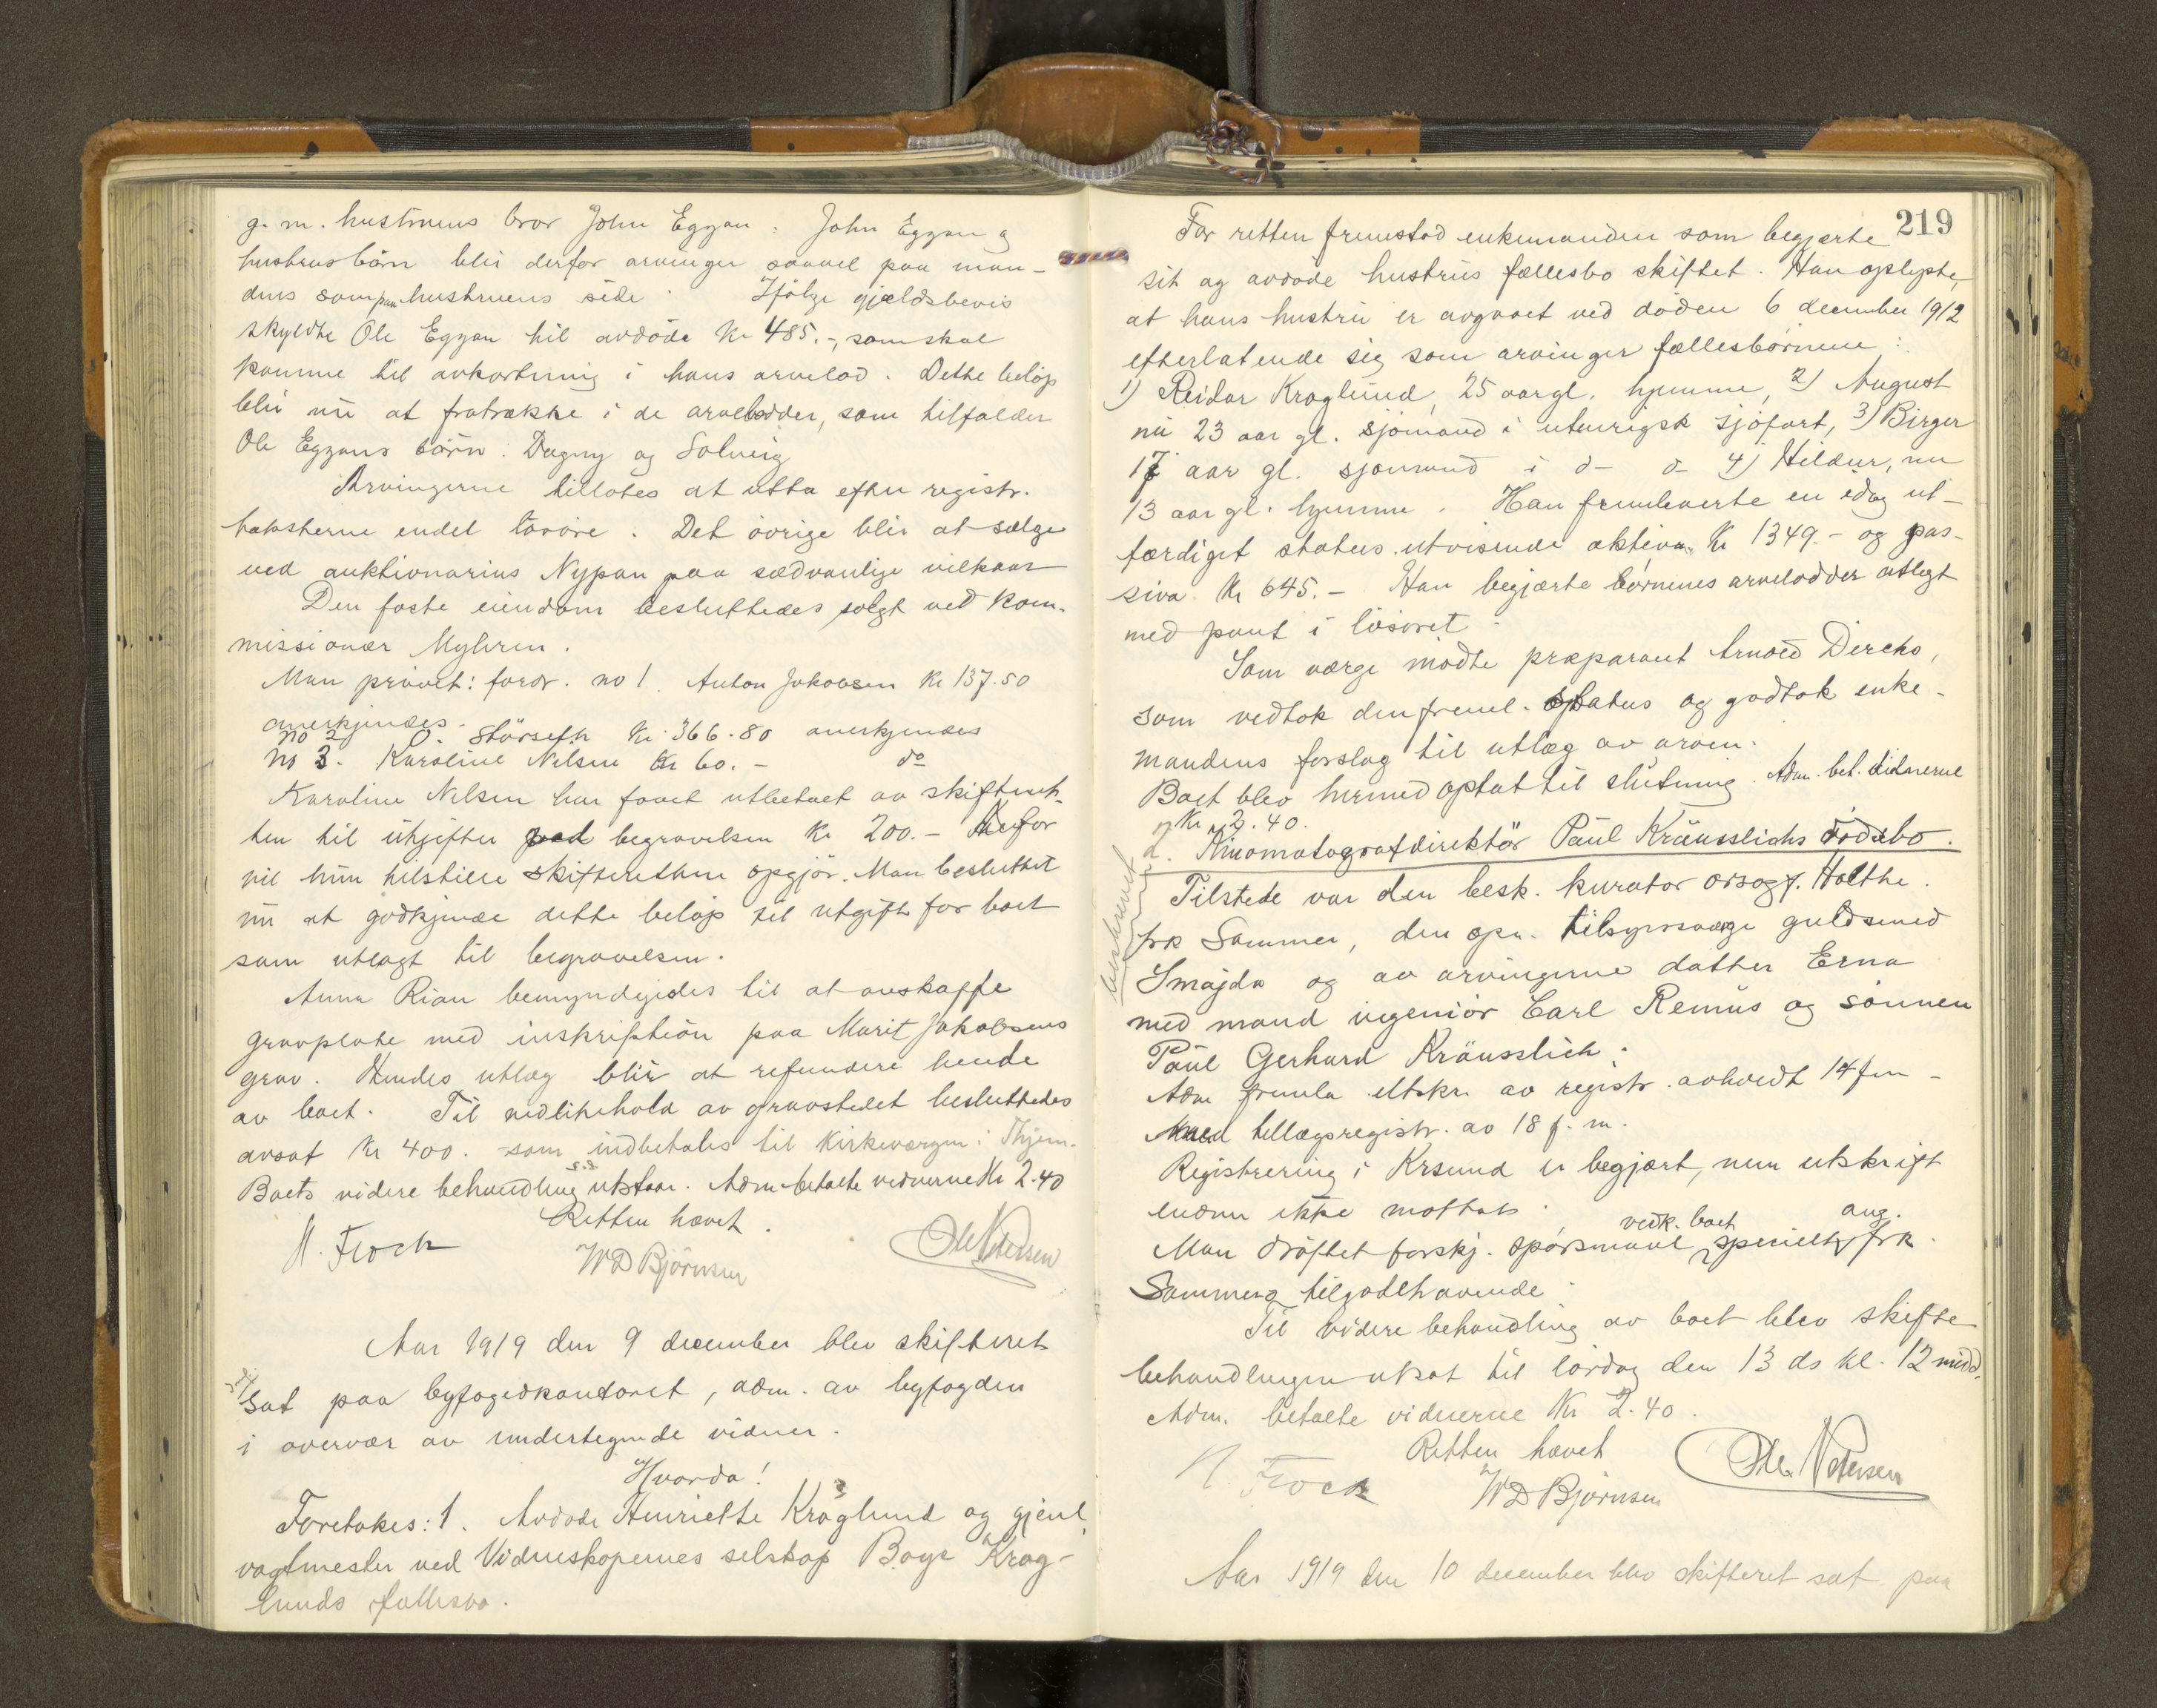 g. m. hustruens bror John Eggan: John Eggan og
hustrus börn blir derfor arvinger saavel paa man-
dens som paa hustruens side. Ifölge gjældsbevis
skyldte Ole Eggan til avdöde Kr 485.-, som skal
komme til avkortning i hans arvelod. Dette belöp
blir nu at fratrække i de arvelodder, som tilfalder
Ole Eggans börn. Dagny og Solveig
Arvingerne tillotes at utta efter registr.
taksterne endel lösöre. Det övrige blir at sælge
ved auktionarius Nypan paa sædvanlige vilkaar
Den faste eiendom besluttedes solgt ved kom-
missionær Myhren.
Man prövet: fordr. no 1. Anton Jakobsen Kr 137.50
anerkjendes.
no 2 O. Störseth Kr 366.80 anerkjendes
no 3. Karoline Nilsen Kr 60.- do
Karoline Nilsen har faaet utbetalt av skifteret-
ten til utgifter ved begravelsen Kr 200.- Herfor
vil hun tilstille skifteretten opgjör. Man besluttet
nu at godkjende dette belöp til utgift for boet
som utlagt til begravelsen.
Anna Rian bemyndigedes til at anskaffe
gravplate med inskription paa Marit Jakobsens
grav. Hendes utlæg blir at refundere hende
av boet. Til vedlikehold av gravstedet besluttedes
avsat Kr 400. som indbetales til kirkeværgen i Thjem.
Boets videre behandling s.d. utstaar. Adm. betalte vidnerne Kr 2.40
Retten hævet.
N. Flock WD Björnsen Ole Petersen
Aar 1919 den 9 december blev skifteret
sat paa byfogedkontoret, adm. av byfogden
i overvær av undertegnede vidner.
Hvorda!
Foretokes: 1. Avdöde Henriette Kroglund og gjenl.
vagtmester ved Videnskapernes selskap Boye Krog-
lunds fællesbo.
219
For retten fremstod enkemanden som begjærte
sit og avdöde hustrus fællesbo skiftet. Han oplyste,
at hans hustru er avgaaet ved döden 6 december 1912
efterlatende sig som arvinger fællesbörnene:
1) Reidar Kroglund, 25 aar gl. hjemme, 2) August
nu 23 aar gl. sjömand i utenrigsk sjöfart, 3) Birger
17 aar gl. sjömand i d- o- 4) Hildur, nu
13 aar gl. hjemme. Han fremleverte en idag ut-
færdiget status utvisende aktiva Kr 1349.- og pas-
siva Kr 645.- Han begjærte börnenes arvelodder utlagt
med pant i lösöret.
Som værge mödte præparant Arnold Dircks,
som vedtok den freml. status og godtok enke-
mandens forslag til utlæg av arven.
Boet blev hermed optat til slutning. Adm. bet. vidnerne
Kr 2.40.
2. Kinomatografdirektör Paul Kräusslichs dödsbo.
beskrevet
Tilstede var den besk. kurator orsagf. Holthe.
frk Sommer, den opn. tilsynsværge guldsmed
Smajda og av arvingerne datter Erna
med mand ingeniör Carl Remus og sönnen
Paul Gerhard Kräusslich.
Adm fremla utskr. av registr. avholdt 14 fm-
med tillægsregistr. av 18 f. m.
Registrering i Krsund er begjært, men utskrift
endnu ikke mottat.
Man dröftet forskj. spörsmaal vedk. boet specielt ang. frk.
Sommers tilgodehavende.
Til videre behandling av boet blev skifte
behandlingen utsat til lördag den 13 ds kl. 12 midd.
Adm. betalte vidnerne Kr 2.40.
Retten hævet
N. Flock WD Björnsen Ole Petersen
Aar 1919 den 10 december blev skifteret sat paa